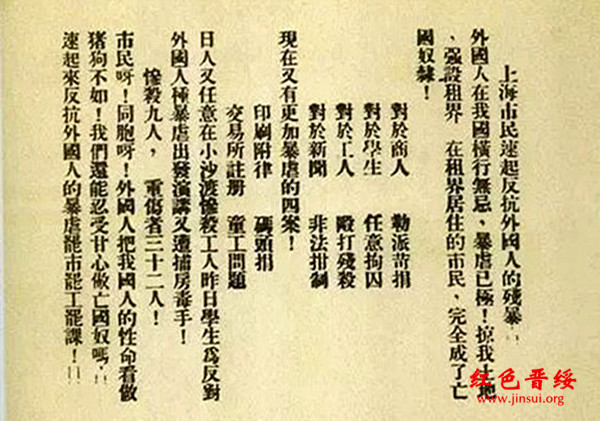 上海市民速起反抗外國人的殘暴！！
外國人在我國橫行無忌、暴虐已極！掠我土地
、强設租界　在租界居住的市民、完全成了亡
國奴隸！
對於商人　勒派苛捐
對於學生　任意拘囚
對於工人　毆打殘殺
對於新聞　非法拑制
現在又有更加暴虐的四案！
印刷附律　碼頭捐
交易所註册　童工問題
日人又任意在小沙渡慘殺工人昨日學生爲反對
外國人種暴虐出發演講又遭捕房毒手！
慘殺九人，　重傷者三十二人！
市民呀！同胞呀！外國人把我國人的性命看做
猪狗不如！我們還能忍受甘心做亡國奴嗎！！
速起來反抗外國人的暴虐罷市罷工罷課！！！
红色晋绥
www.jinsui.org